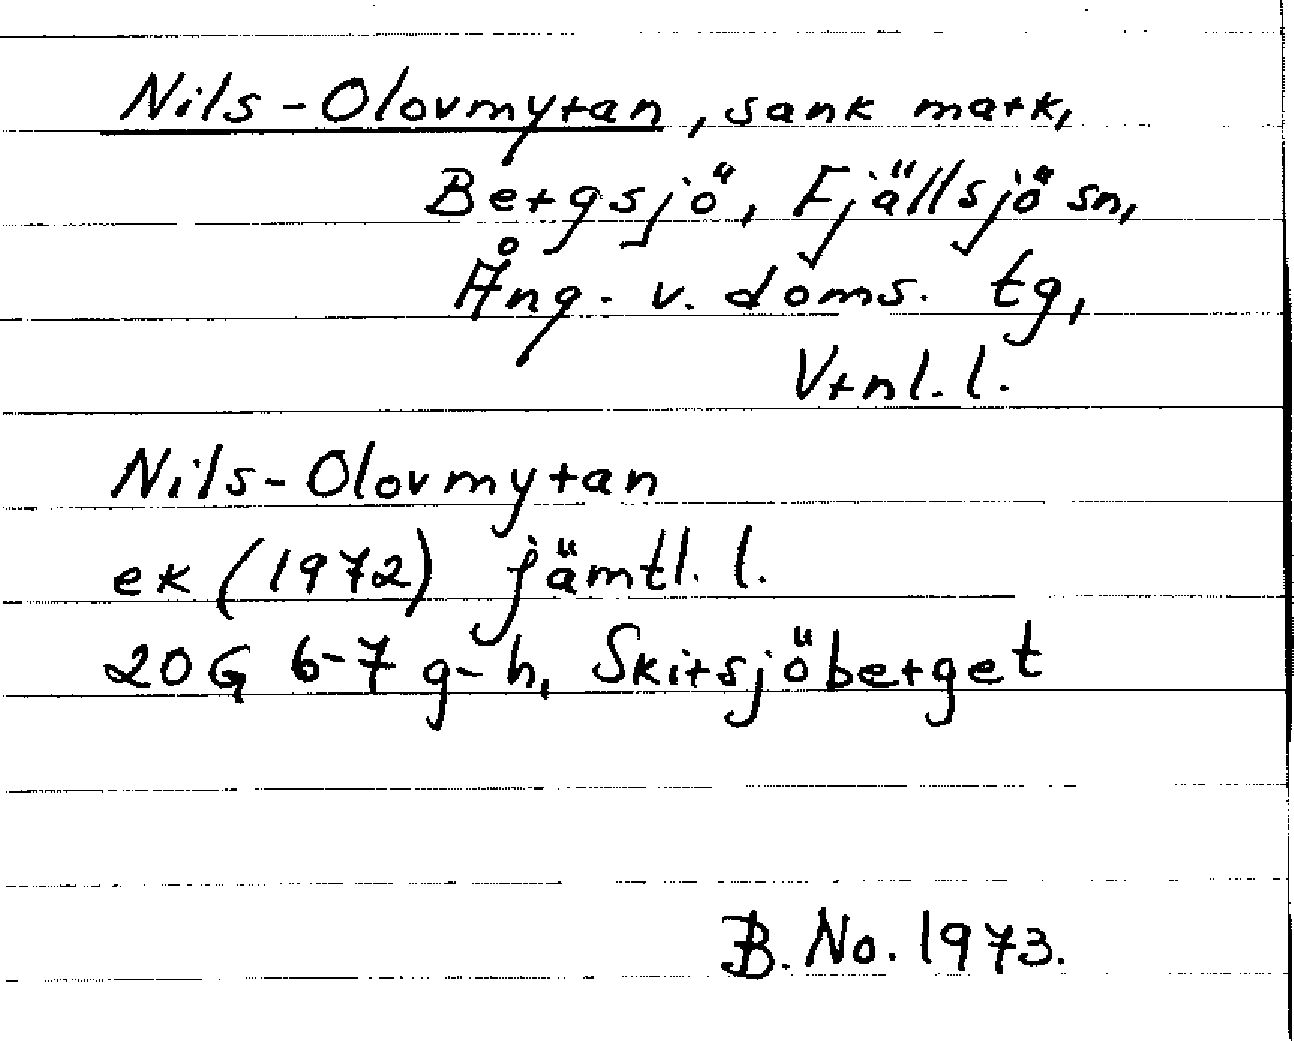 Nils-Olovmyran, sank mark,
Bergsjö, Fjällsjö sn,
Ång. v. doms. tg,
Vrnl. l.
Nils-Olovmyran
ek (1972) Jämtl. l.
20 G 6-7 g-h, Skirsjöberget
B. No. 1973.